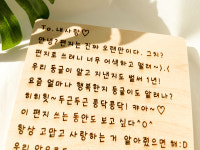 To. 내사랑♡
안녕? 편지는 진짜 오랜만이다. 그치?
편지로 쓰려니 너무 어색하고 떨려~).(
우리 둥글이 알고 지낸지도 벌써 1년!
요즘 얼마나 행복한지 둥글이도 알려나?
히히힛~두근두근 콩닥콩닥! 캬아~♡
이 편지 쓰는 동안도 보고 싶다^0^
항상 고맙고 사랑하는 거 알아줬으면 해:D
우리 앞으로도